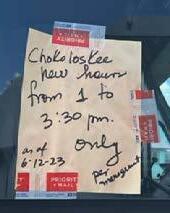 PRIORITY
MAIL
Chokoloskee
new hours
from 1 to
3:30 pm.
only
as of
6-12-23
per
management
PRIORITY
MAIL
PRIORITY
MAIL